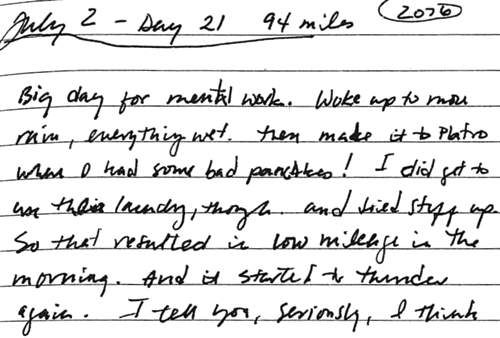 July 2 - Day 21 94 miles 2076
Big day for mental work. Woke up to more
rain, everything wet. Then made it to Platro
where I had some bad pancakes! I did get to
use their laundry, though. and dried stuff up.
So that resulted in low mileage in the
morning. And it started to thunder
again. I tell you, seriously, I think